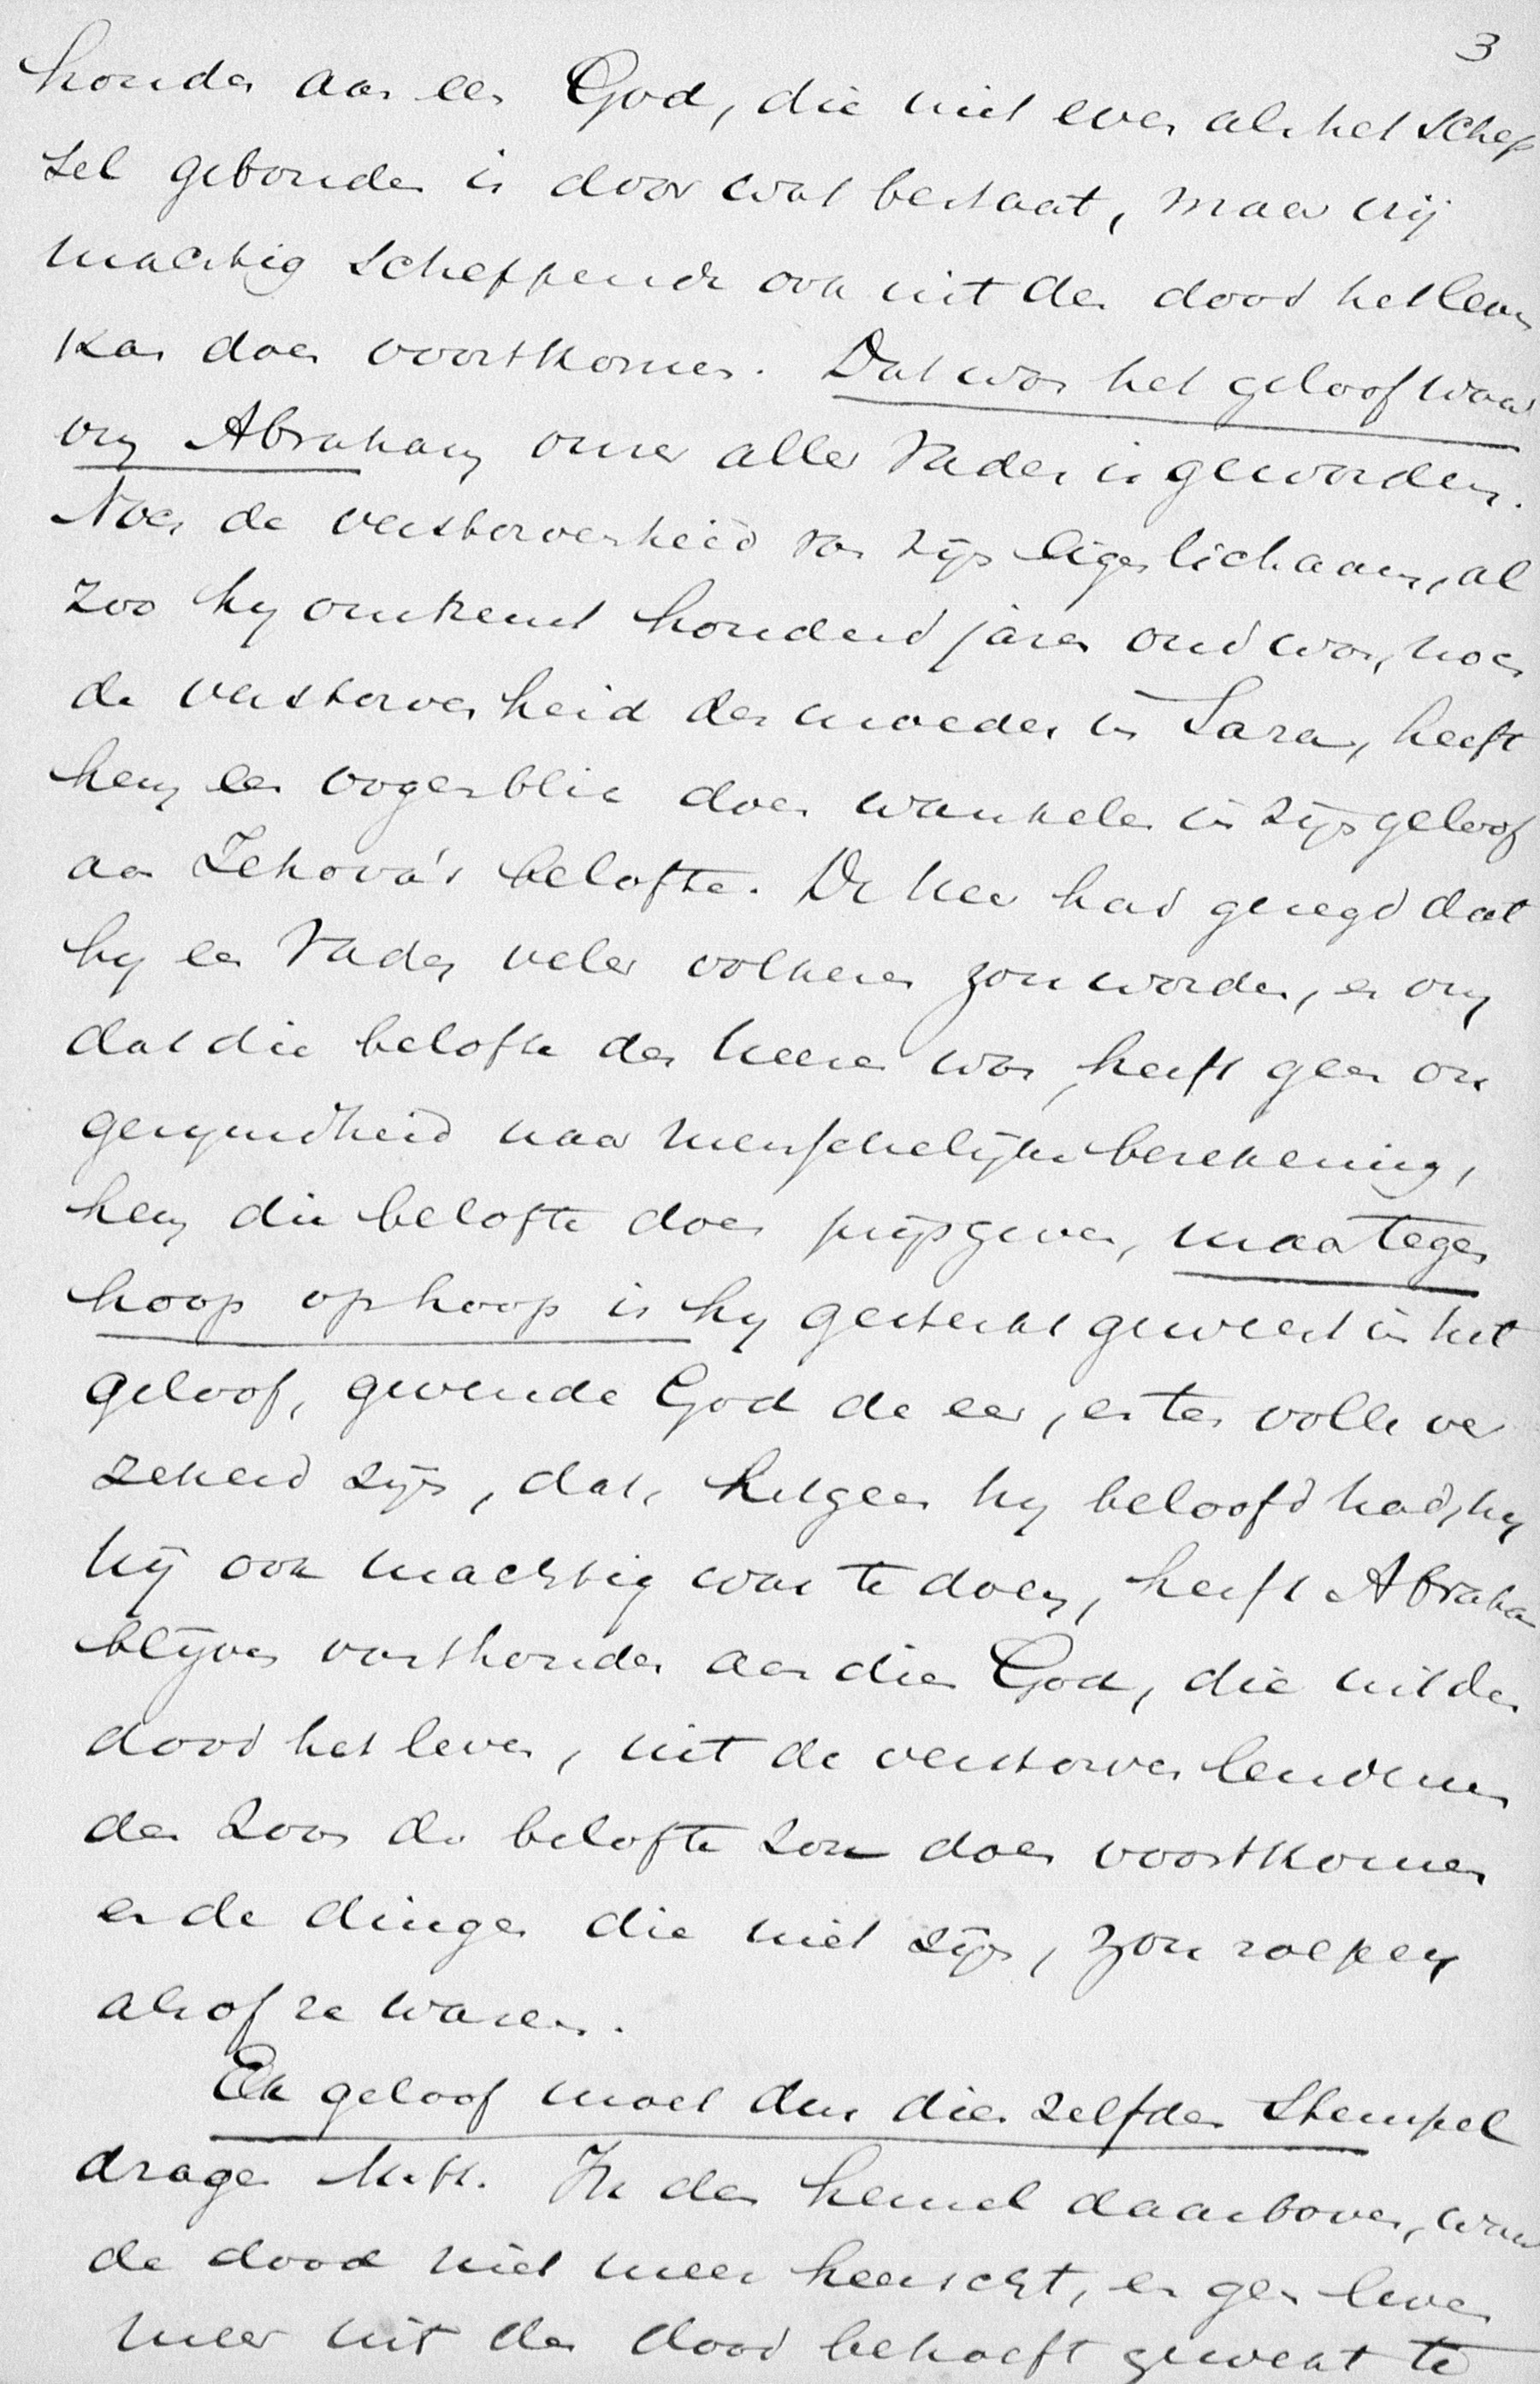 3
houden aan een God, die niet even als het schep
sel gebonden is door wat bestaat, maar vrij
machtig scheppende ook uit den dood het leven
kan doen voortkomen. Dat was het geloof waar
om Abraham onzer aller Vader is geworden.
Noch de verstorvenheid van zijn eigen lichaam, al
zoo hy omtrent honderd jaren oud was, noch
de verstorvenheid der moeder in Sara, heeft
hem een oogenblik doen wankelen in zijn geloof
aan Jehova's belofte. De Heer had gezegd dat
hy een Vader veler volkeren zou worden, en om
dat die belofte des Heeren was, heeft geen on
gerymdheid naar menschelijke berekening,
hem die belofte doen prijsgeven, maar tegen
hoop op hoop is hy gesterkt geweest in het
geloof, gevende God de eer, en ten volle ver
zekerd zijn, dat, hetgeen hy beloofd had, hy
hij ook machtig was te doen, heeft Abraham
blijven vasthouden aan dien God, die uit den
dood het leven, uit de verstorven lendenen
den zoon der belofte zou doen voortkomen
en de dingen die niet zijn, zou roepen
alsof ze waren.
Elk geloof moet dus dien zelfden stempel
dragen M. H. In den hemel daarboven, waar
de dood niet meer heerscht, en geen leven
meer uit den dood behoeft gewekt te